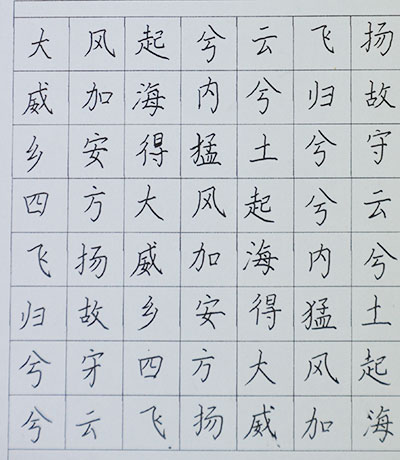 大风起兮云飞扬
威加海内兮归故
乡安得猛土兮守
四方大风起兮云
飞扬威加海内兮
归故乡安得猛土
兮守四方大风起
兮云飞扬威加海